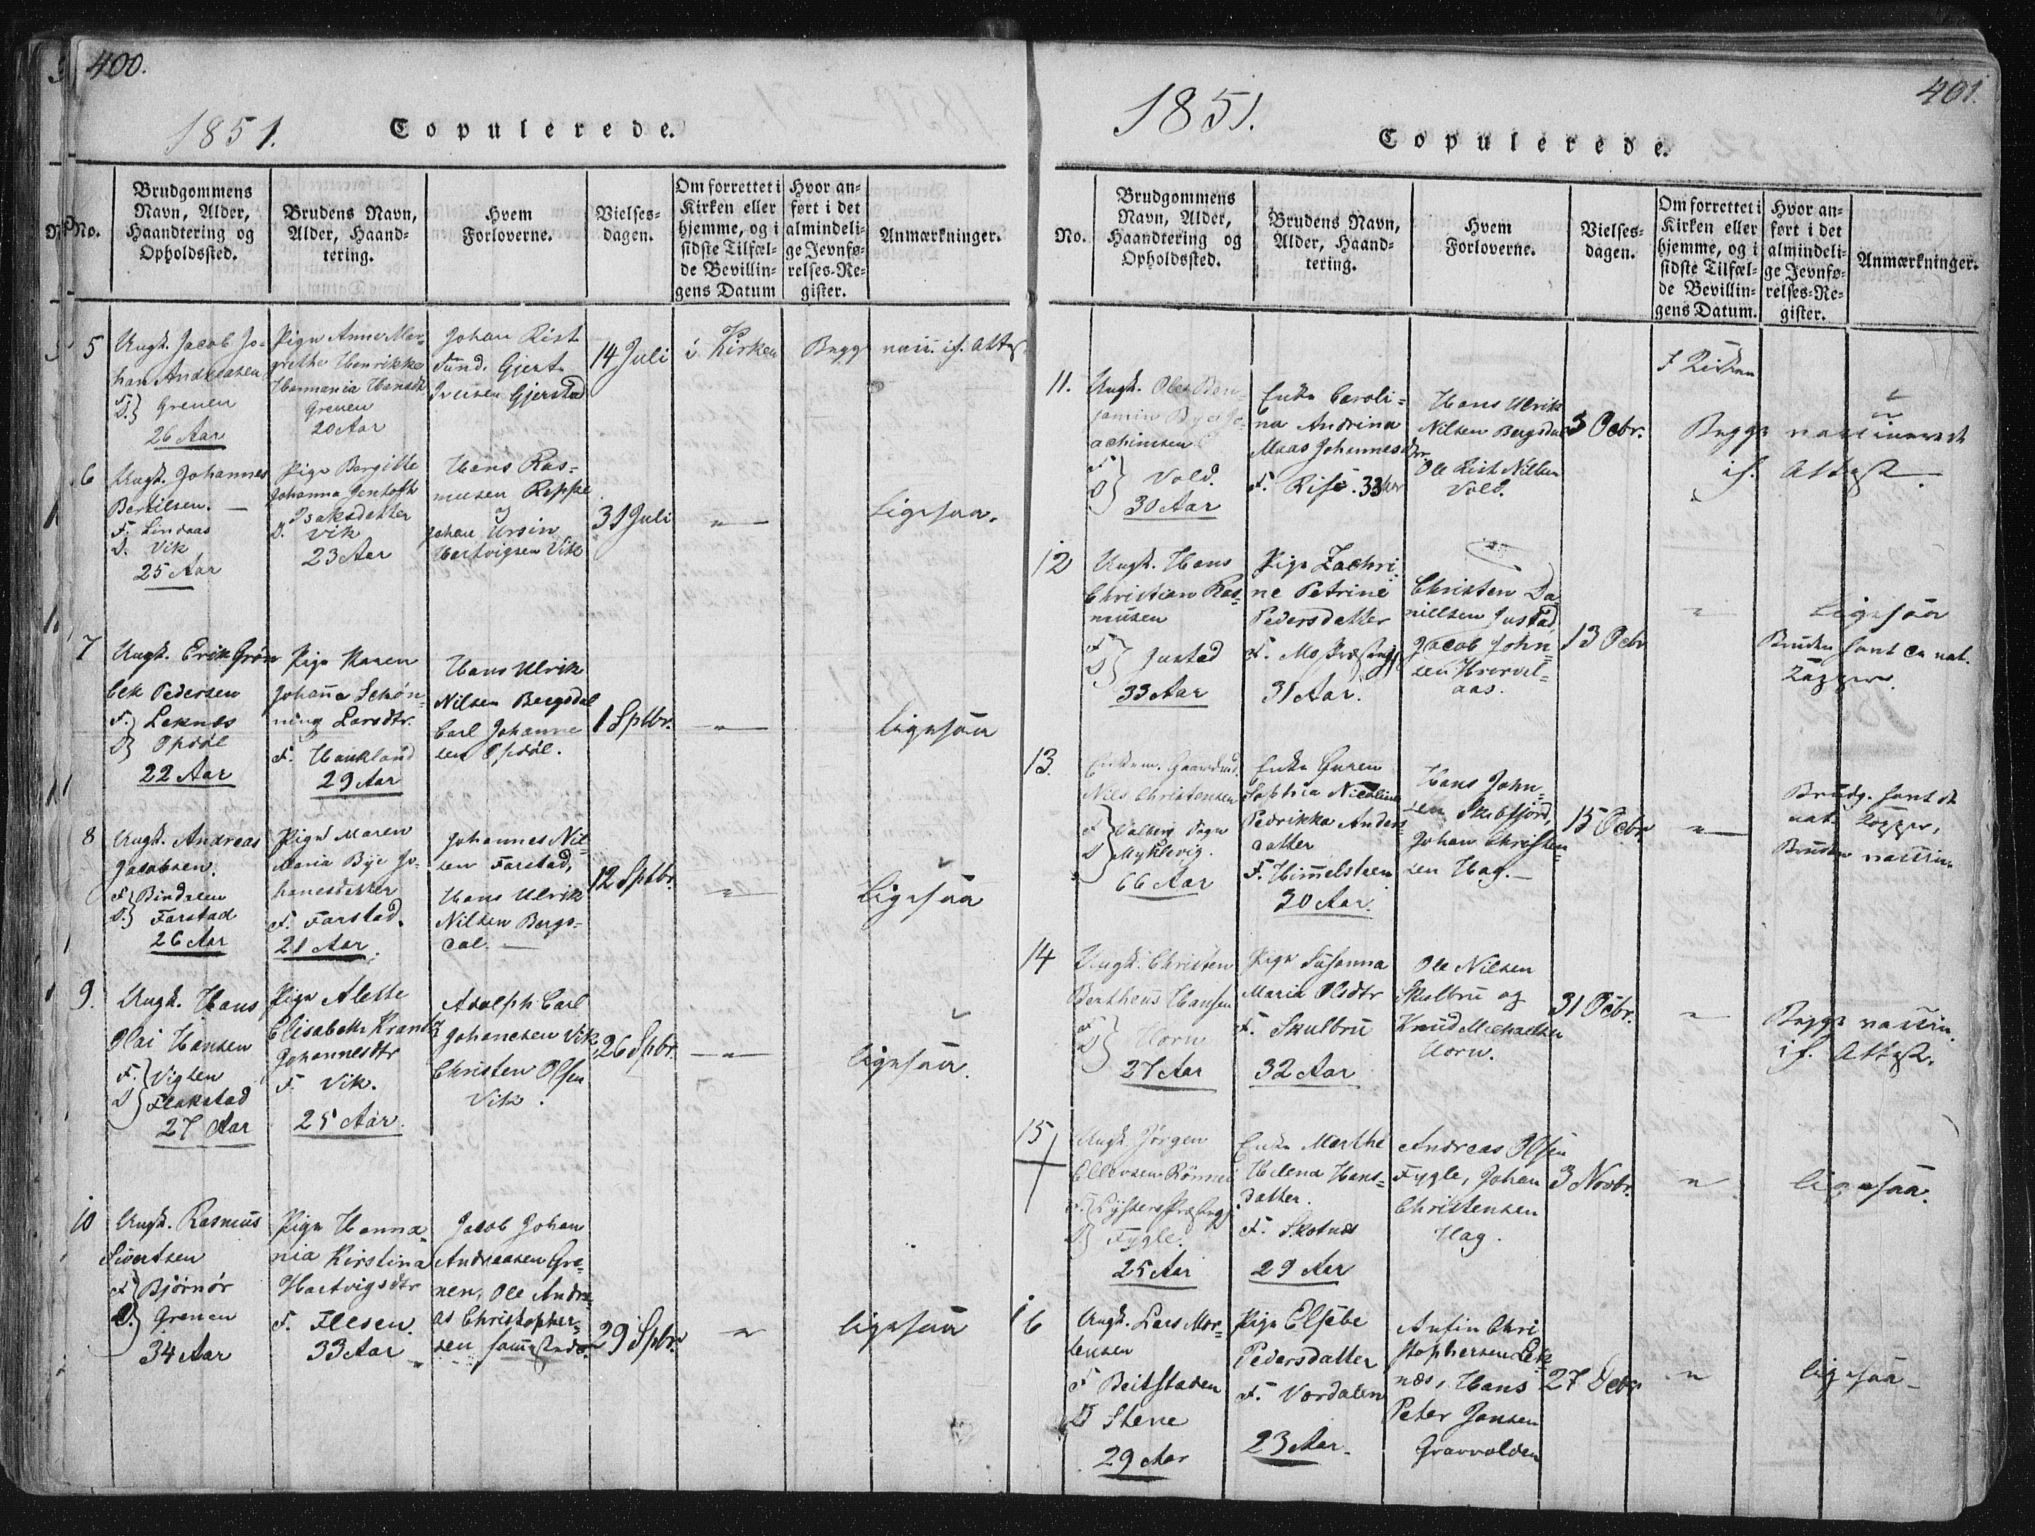 400.
1851.
Copulerede.
No.
Brudgommens
Navn, Alder,
Haandtering og
Opholdssted.
Brudens Navn,
Alder, Haand-
tering.
Hvem
Forloverne.
Vielses-
dagen.
Om forrettet i
Kirken eller
hjemme, og i
sidste Tilfæl-
de Bevillin-
gens Datum
Hvor an-
ført i det
almindeli-
ge Jevnfø-
relses-Re-
gister.
Anmærkninger.
5
Ungk. Jacob Jo-
han Andreasen
F. D. } Grenen
26 Aar
Pige Anne Mar-
grethe Henrikke
Hermania Hansdtr
Grenen
20 Aar
Johan Rist
Sund. Gjert
Iversen Gjerstad
14 Juli
i Kirken
Begge vacc. if. Attest
6
Ungk. Johannes
Bertilsen.
F. Lindaas
D. Vik
25 Aar
Pige Bergitte
Johanna Jentoft
Isaksdatter
D. Vik
23 Aar
Hans Ras-
musen Reppe
Johan Ursin
Hartvigsen Vik
31 Juli
"
Ligesaa.
7
Ungk. Erik Grøn
bek Pedersen
F. } Leknes
D } Opdøl
22 Aar
Pige Karen
Johanna Schøn-
ning Larsdtr.
F. Haukland
29 Aar
Hans Ulrik
Nilsen Bergsdal
Carl Johanne
sen Opdøl.
1 Sptbr.
"
ligesaa
8
Ungk. Andreas
Jacobsen.
F } Bindalen
D. } Farstad
26 Aar
Pige Maren
Maria Bye Jo-
hanesdatter
F. Farstad.
21 Aar.
Johannes Nil-
sen Farstad,
Hans Ulrik
Nilsen Bergs-
dal.
12 Sptbr.
"
ligesaa
9.
Ungk. Hans
Olai Hansen
F. } Viglen
D } Flakstad
27 Aar
Pige Alette
Elisabeth Krantz
Johannesdtr
F. Vik.
25 Aar.
Adolph Carl
Johanesen Vik
Christen Olsen
Vik.
26 Spbr.
"
ligesaa.
10
Ungk. Rasmus
Sivertsen
F } Bjørnør
D. } Grenen
34 Aar
Pige Hanna-
nia Kirstina
Hartvigsdtr
F. Flesen.
33 Aar
Jacob Johan
Andreasen Gre-
nen, Ole Andre-
as Christopher-
sen samestds.
29 Spbr
"
ligesaa
401.
1851.
Copulerede.
No.
Brudgommens
Navn, Alder,
Haandtering og
Opholdssted.
Brudens Navn,
Alder, Haand-
tering.
Hvem
Forloverne.
Vielses-
dagen.
Om forrettet i
Kirken eller
hjemme, og i
sidste Tilfæl-
de Bevillin-
gens Datum.
Hvor an-
ført i det
almindeli-
ge Jevnfø-
relses-Re-
gister.
Anmærkninger.
11.
Ungk. Ole Ben-
jamin Bye Jo-
achimsen
F D } Vold.
30 Aar
Enke Caroli-
na Andrina
Maas Johannesdtr.
F. Risø. 33 Aar
Hans Ulrik
Nilsen Bergsdal
Ole Rist Nilsen
Vold.
5 Octbr.
I Kirken
Begge vaccinerede
if. Attest.
12
Ungk. Hans
Christian Ras-
musen
F D } Justad
33 Aar
Pige Zachri-
ne Petrine
Pedersdatter
F. Mo Præstegj
31 Aar.
Christen Da
nielsen Justad
Jacob John-
sen
13 Octbr
"
ligesaa
Bruden havt de nat.
Kopper.
13.
Enkem. Gaardmd.
Nils Christensen
F Valberg Sogn
D Myklevig.
66 Aar
Enke Guren
Sophia Nicoline
Fedrikka Anders-
datter
F. Himmelsteen
30 Aar.
Hans John-
sen Skabfjord,
Johan Christen-
sen Hag.
15 Octbr
"
Brudg. havt de
nat. Kopper,
Bruden vaccin.
14
Ungk. Christen
Bertheus Hansen
F D } Uorn
27 Aar
Pige Susanna
Maria Olsdtr
F. Skulbru
32 Aar
Ole Nilsen
Skulbru og
Knud Michaelsen
Uorn.
31 Octbr.
"
Begge vaccin.
if. Attest.
15
Ungk. Jørgen
Ellevsen Rønnei
F. } Lysters Præstegj
D } Fygle.
25 Aar
Enke Marthe
Helena Hans-
datter.
F. Skotnæs
29 Aar
Andreas Olsen
Fygle, Johan
Christensen
Hag.
3 Novbr.
"
ligesaa.
16
Ungk. Lars Mor-
tensen
F Beitstaden
D Stene
29 Aar
Pige Elsebe
Pedersdatter
F. Vordalen
23 Aar.
Anfin Chri
stophersen Lek-
næs, Hans
Peter Jansen
Gravvolden
27 Decbr
"
ligesaa